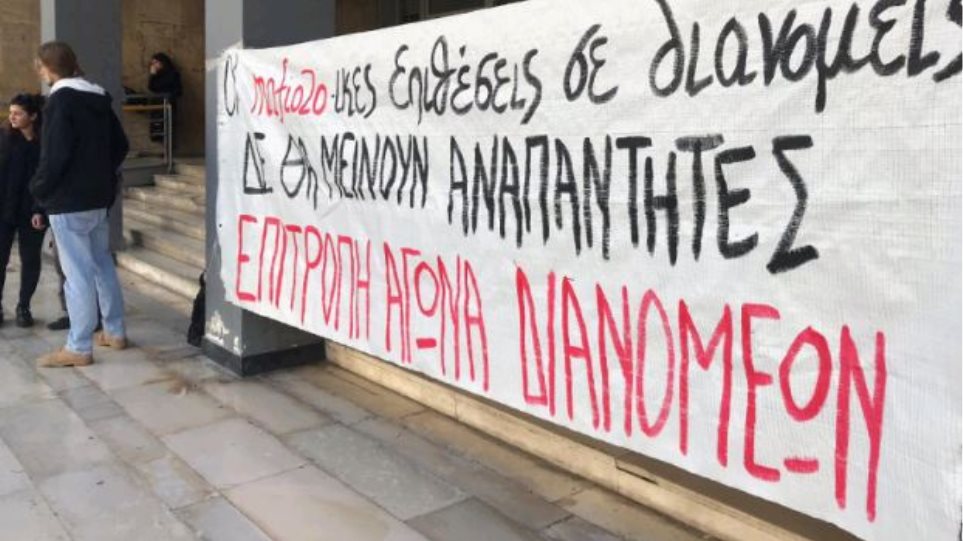 Οι mafiozo-ικες επιθέσεις σε διανομείς
ΔΕ ΘΑ ΜΕΙΝΟΥΝ ΑΝΑΠΑΝΤΗΤΕΣ
ΕΠΙΤΡΟΠΗ ΑΓΩΝΑ ΔΙΑΝΟΜΕΩΝ